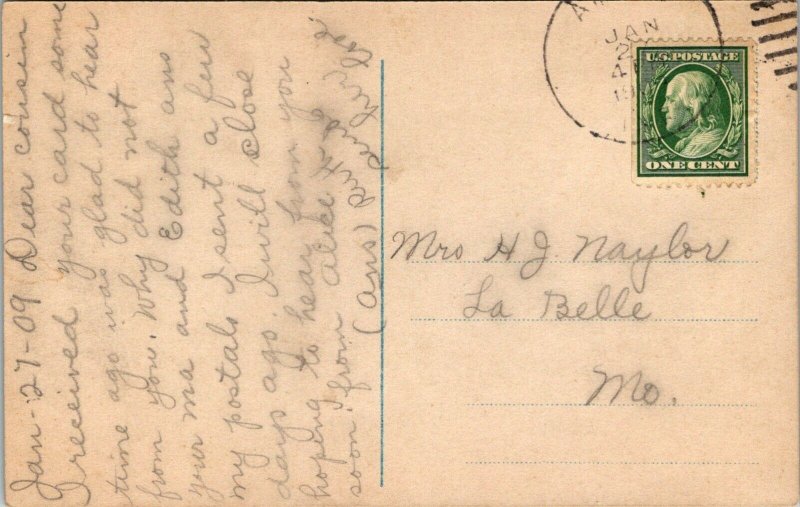 Jan - 27 - 09 Dear cousin
I received your card some
time ago was glad to hear
from you. Why did not
your ma and Edith ans
my postals I sent a few
days ago. I will close
hoping to hear from you
soon. from Alice
(ans)
JAN
U.S. POSTAGE
ONE CENT
Mrs H J. Naylor
La Belle
Mo.